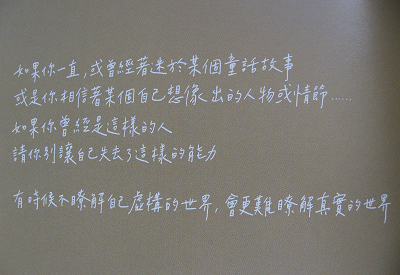 如果你一直，或曾經著迷於某個童話故事
或是你相信著某個自己想像出的人物或情節……
如果你曾經是這樣的人
請你別讓自己失去了這樣的能力
有時候不瞭解自己虛構的世界，會更難瞭解真實的世界